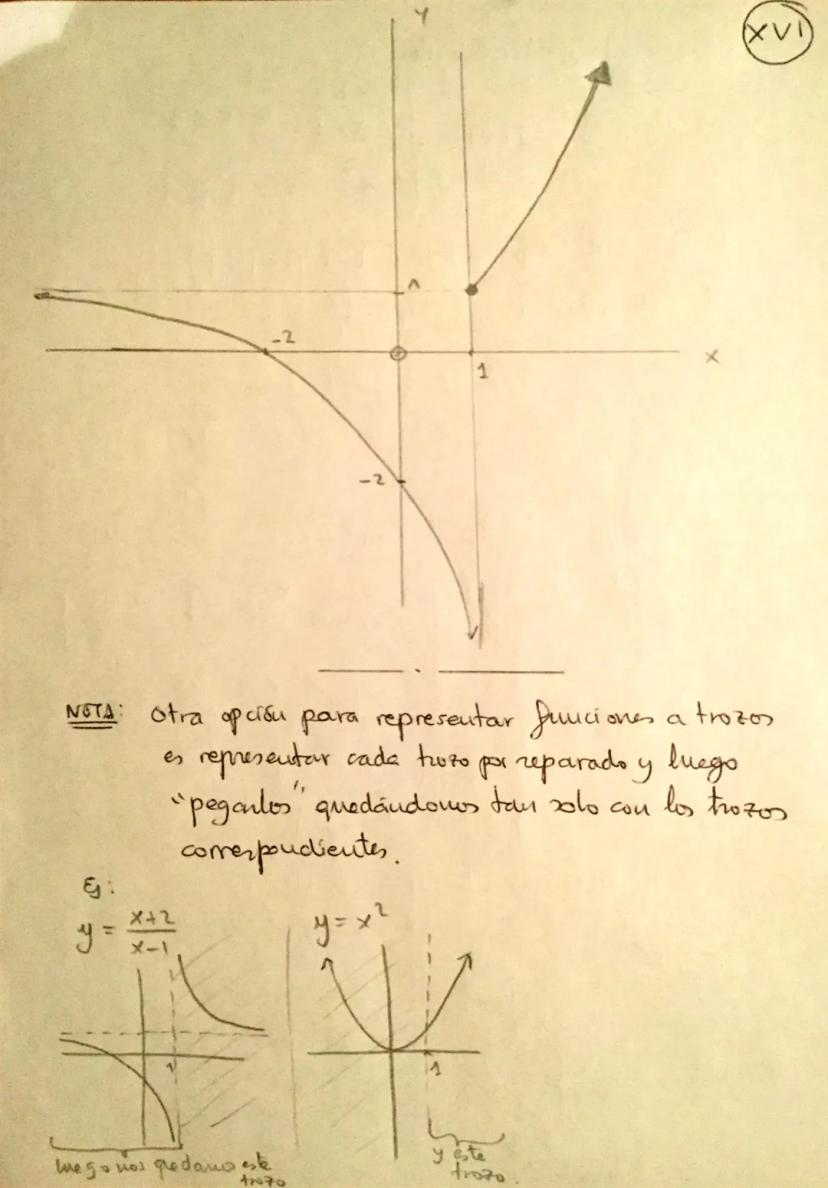 XVI
Y
1
-2
X
1
-2
NOTA: Otra opción para representar funciones a trozos
es representar cada trozo por separado y luego
"pegarlos" quedándonos tan solo con los trozos
correspondientes.
Ej:
y = x+2 / x-1
y = x²
1
1
luego nos quedamos este
trozo
y este
trozo.